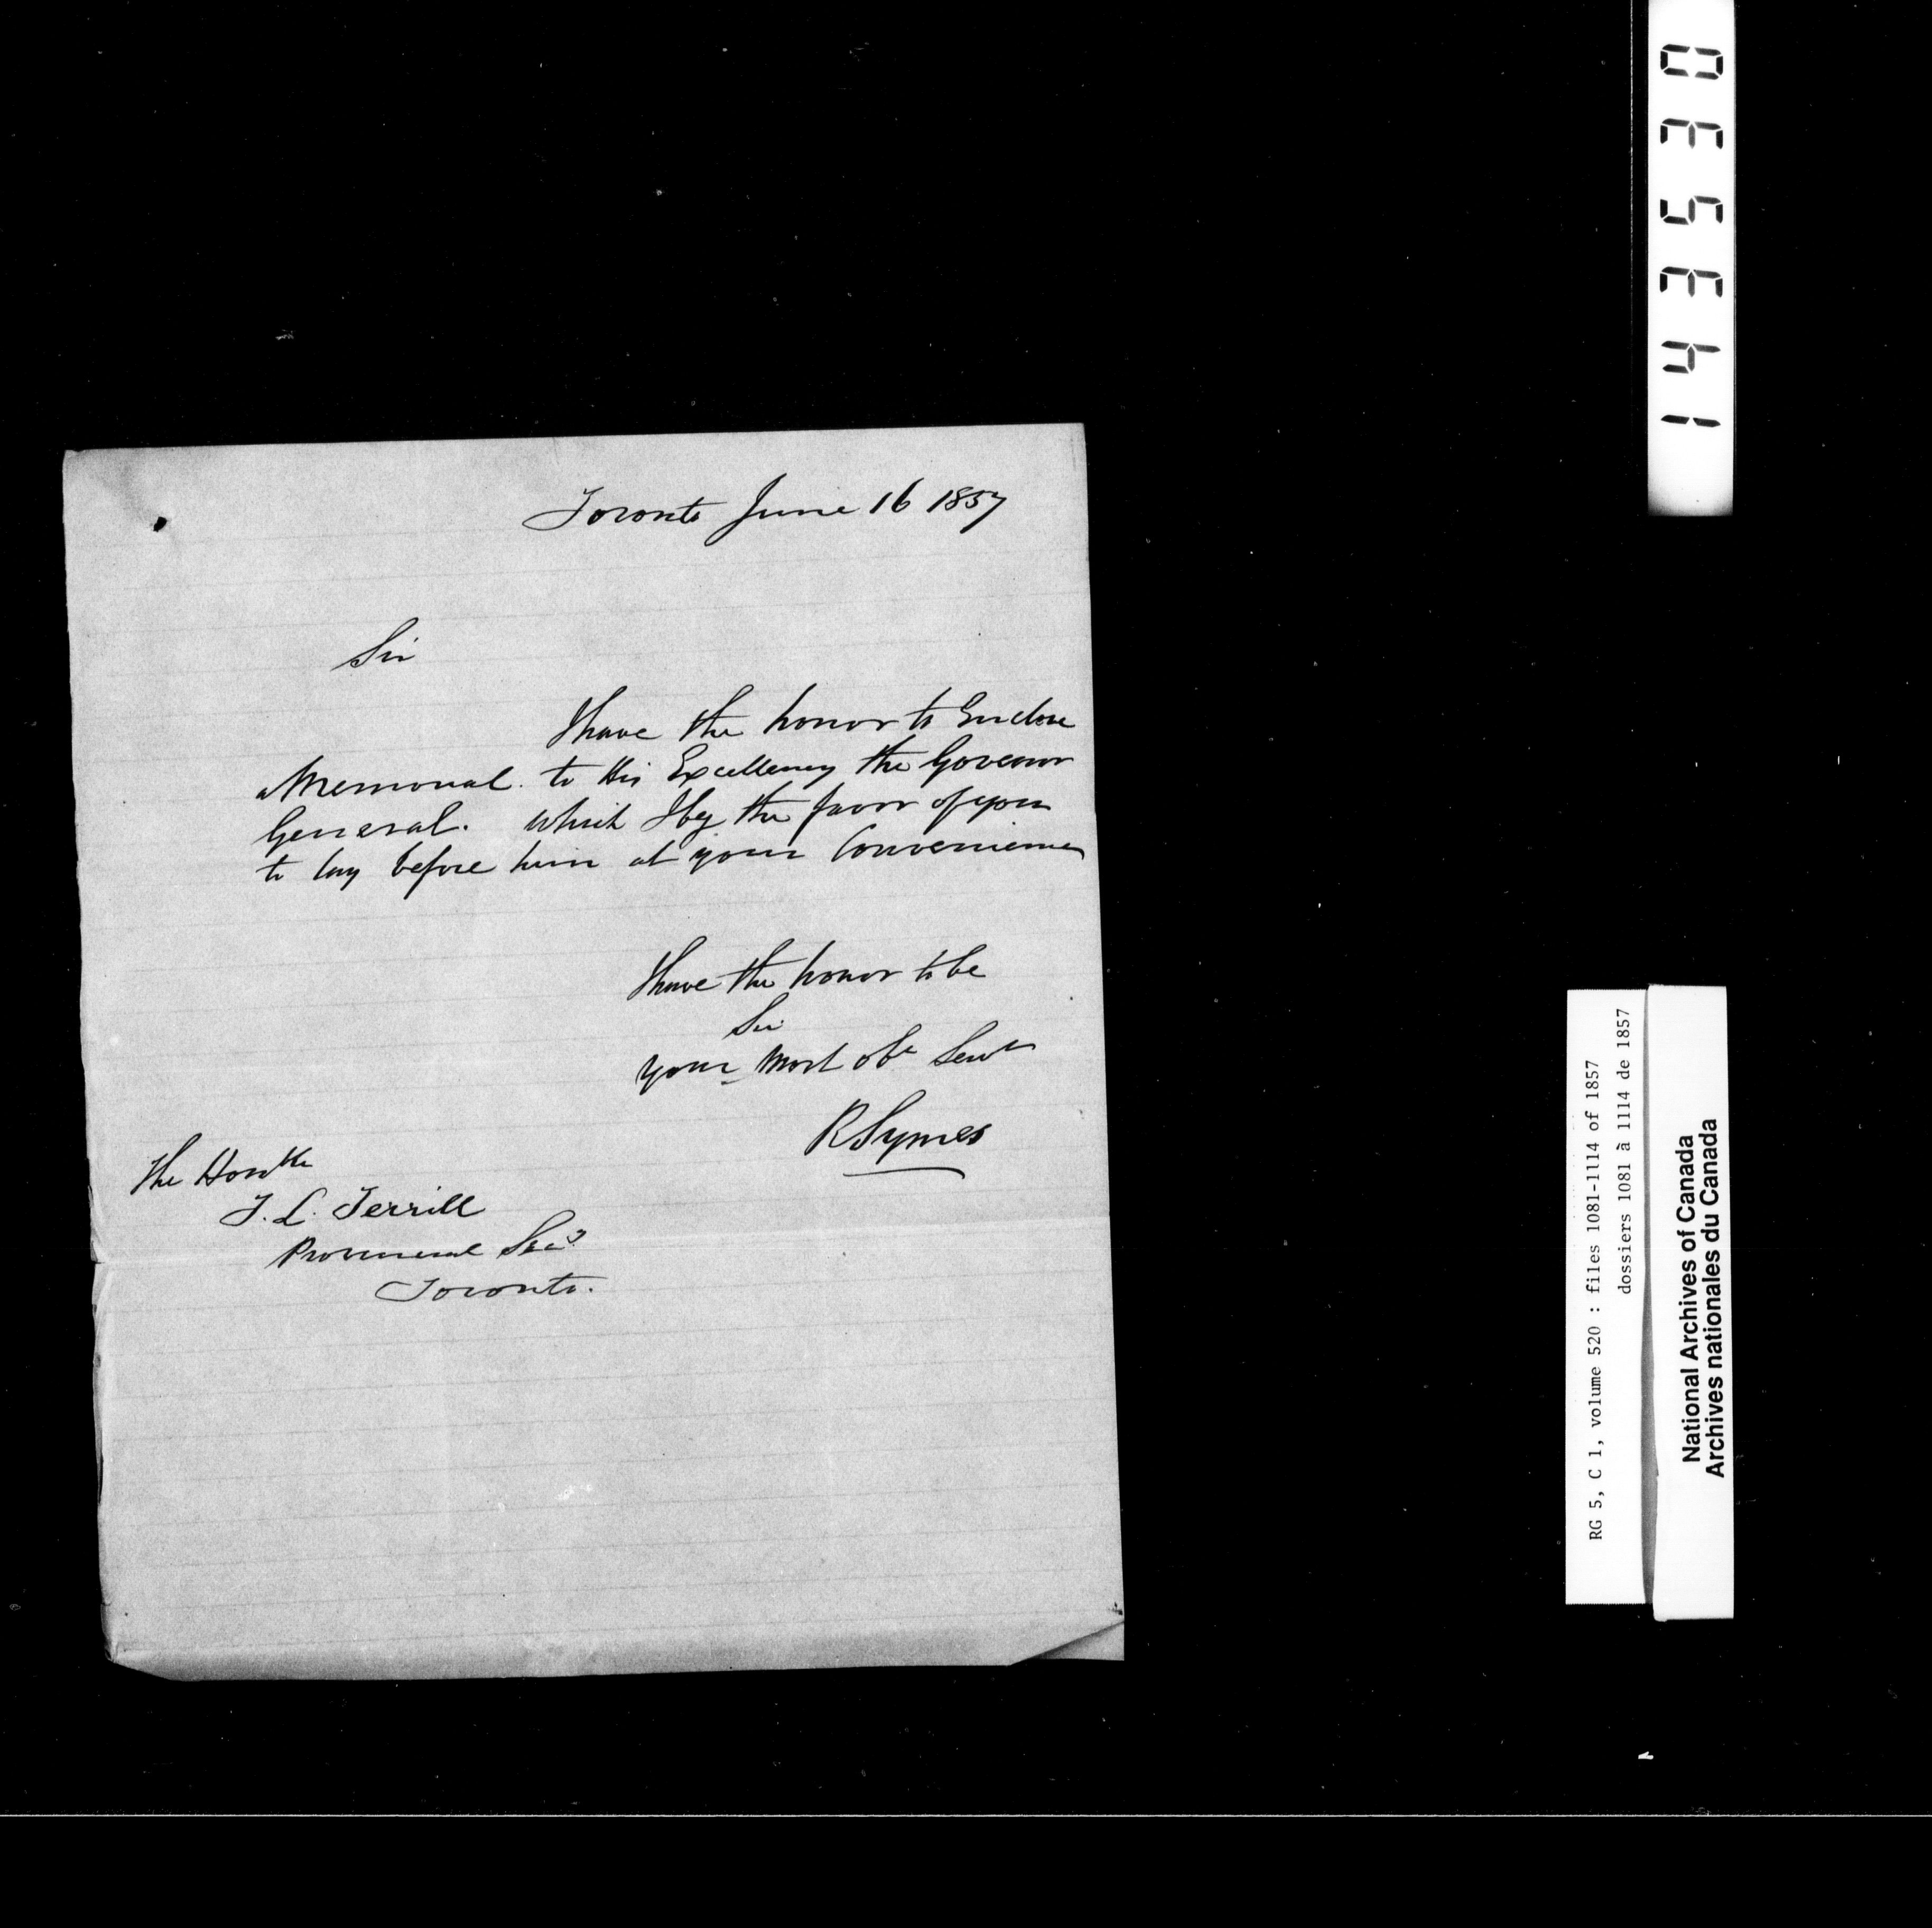 Toronto June 16 1857
Sir
I have the honor to Enclose
a Memorial. to His Excellency the Governor
General. which I beg the favor of you
to lay before him at your Convenience
I have the honor to be
Sir
your most obt Servt
R Symes
The Honble
T. L. Terrill
Provincial Secy
Toronto.
143530
RG 5, C 1, volume 520 : files 1081-1114 of 1857
dossiers 1081 à 1114 de 1857
National Archives of Canada
Archives nationales du Canada